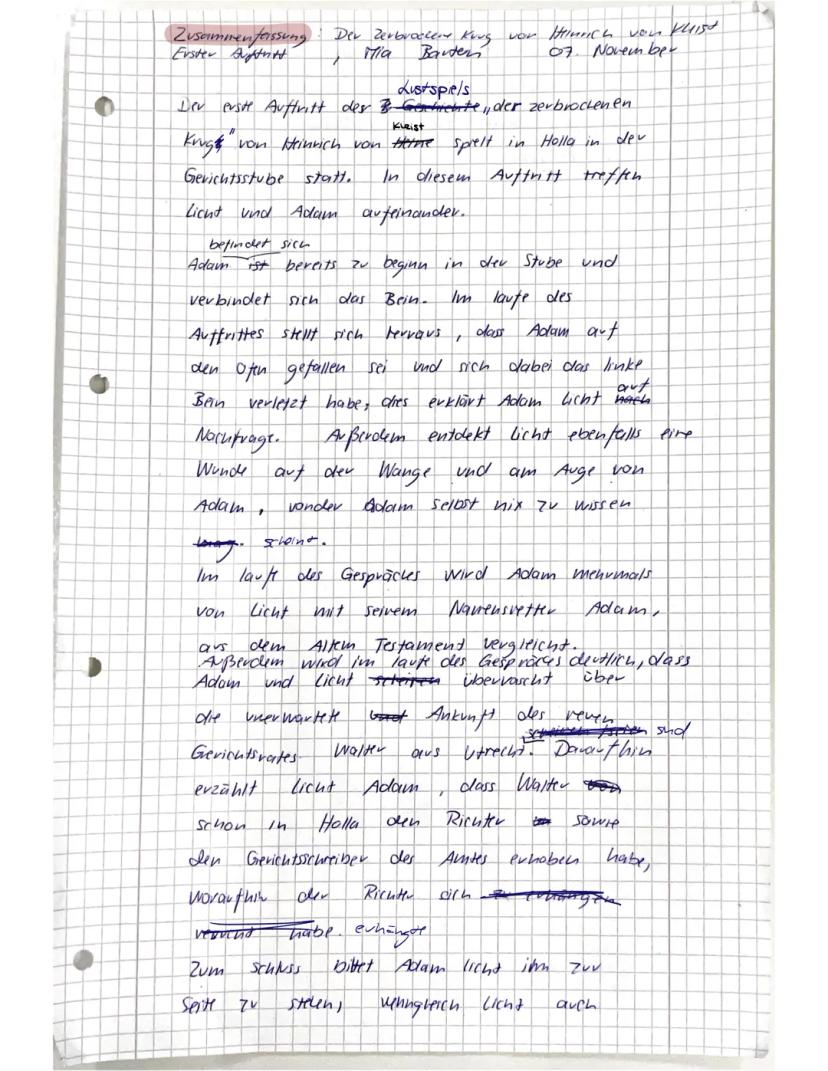 Zusammenfassung: Der zerbrochene Krug von Heinrich von Kleist
Erster Auftritt , Mia 07. November
Lustspiels
Der erste Auftritt des Geschichte „der zerbrochenen
Kleist
Krug" von Heinrich von Heine spielt in Holla in der
Gerichtsstube statt. In diesem Auftritt treffen
Licht und Adam aufeinander.
befindet sich
Adam ist bereits zu beginn in der Stube und
verbindet sich das Bein. Im laufe des
Auftrittes stellt sich herraus, dass Adam auf
den Ofen gefallen sei und sich dabei das linke
auf
Bein verletzt habe, dies erklärt Adam licht nach
Nachfrage. Außerdem entdekt licht ebenfalls eine
Wunde auf der Wange und am Auge von
Adam, von der Adam selbst nix zu wissen
scheint.
Im laufe des Gespräches wird Adam mehrmals
von Licht mit seinem Namensvetter Adam,
aus dem Altem Testament vergleicht.
Außerdem wird im laufe des Gespräces deutlich, dass
Adam und licht scheinen überrascht über
die unerwartete und Ankunft des neuen
sind
Gerichtsrates Walter aus Utrecht. Daraufhin
erzählt licht Adam, dass Walter
schon in Holla den Richter sowie
den Gerichtsschreiber des Amtes erhoben habe,
woraufhin der Richter sich zu erhängen
versucht habe. erhängte
Zum schluss bittet Adam licht ihm zur
Seite zu stehen, wenngleich licht auch